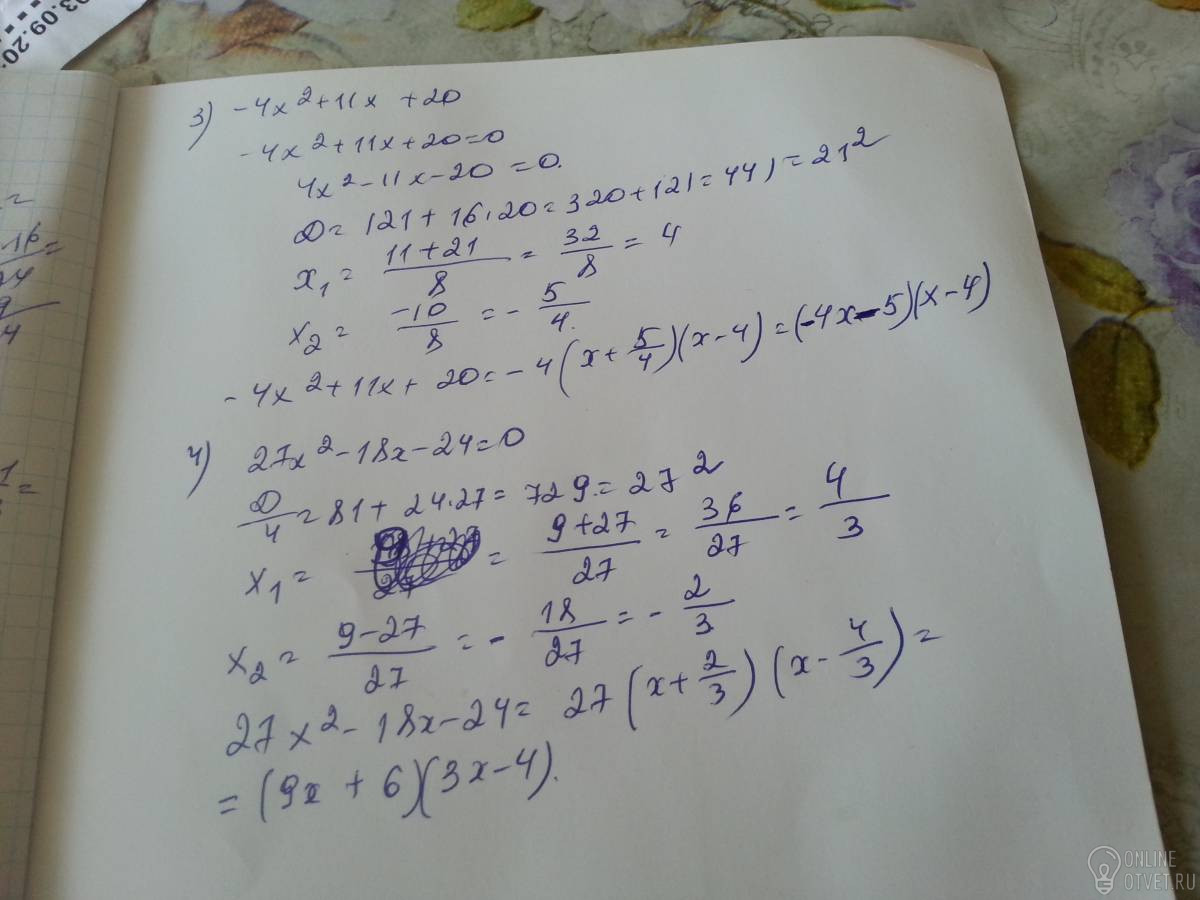 03.09.20
=
16 =
4
1 =
3) -4x² + 11x + 20
-4x² + 11x + 20 = 0
4x² - 11x - 20 = 0.
D = 121 + 16·20 = 320 + 121 = 441 = 21²
x₁ = \frac{11+21}{8} = \frac{32}{8} = 4
x₂ = \frac{-10}{8} = -\frac{5}{4}.
-4x² + 11x + 20 = -4(x + \frac{5}{4})(x - 4) = (-4x - 5)(x - 4)
4) 27x² - 18x - 24 = 0
\frac{D}{4} = 81 + 24·27 = 729 = 27²
x₁ = = \frac{9+27}{27} = \frac{36}{27} = \frac{4}{3}
x₂ = \frac{9-27}{27} = -\frac{18}{27} = -\frac{2}{3}
27x² - 18x - 24 = 27(x + \frac{2}{3})(x - \frac{4}{3}) =
= (9x + 6)(3x - 4).
ONLINE
OTVET.RU